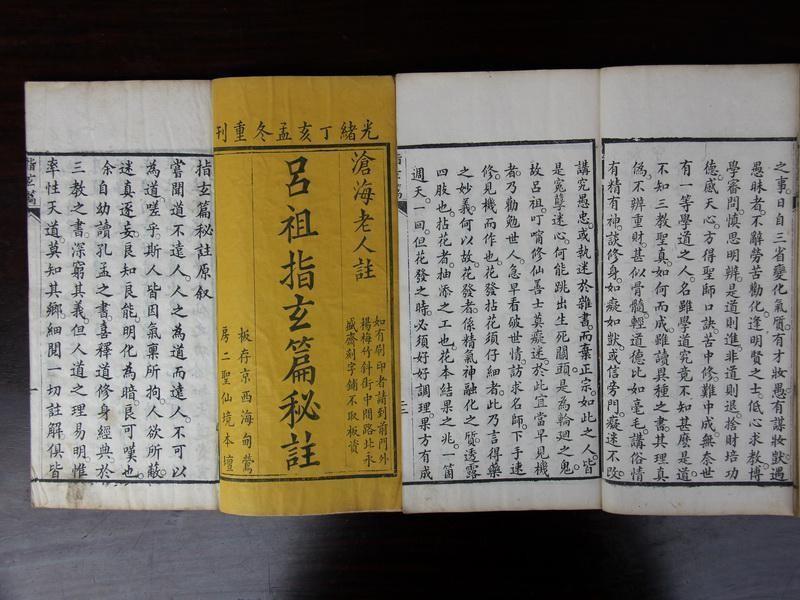 之事。日自三省變化氣質。有才妝愚。有講妝獃。遇
愚昧者。不辭勞苦勸化。逢明賢之士。低心求教。博
學審問。慎思明辨。是道則進。非道則退。捨財培功
德。感天心。方得聖師口訣。苦中修。難中成。無奈世
有一等學道之人。名雖學道。究竟不知甚麼是道
不知三教聖真。如何而成。雖讀異種之書。其理真
偽。不辨。重財甚似骨髓。輕道德比如毫毛。講俗情
有精有神。談修身。如癡如獃。或信旁門。癡迷不改
講究愚忠。或執迷於雜書。而棄正宗。如此之人。皆
是寃孽迷心。何能跳出生死關頭。是為輪廻之鬼。
故呂祖叮嚀修仙善士。莫癡迷於此。宜當早見機
者。乃勸勉世人。急早看破世情。訪求名師。下手速
修。見機而作也。花發拈花須仔細者。此乃言得藥
之妙義。何以故。花發者。係精氣神融化之質。透露
四肢也。拈花者。抽添之工也。花本結果之兆。一箇
週天。一回。但花發之時。必須好好調理。果方有成
指玄篇
三
光緒丁亥孟冬重刊
滄海老人註
呂祖指玄篇秘註
如有刷印者請到前門外
楊梅竹斜街中間路北永
盛齋刻字鋪不取板資
板存京西海甸鶯
房二聖仙境本壇
指玄篇秘註原叙
嘗聞道不遠人。人之為道而遠人。不可以
為道。嗟乎。斯人皆因氣稟所拘。人欲所蔽。
迷真逐妄。良知良能。明化為暗。良可嘆也。
余自幼讀孔孟之書。喜釋道修身經典。於
三教之書。深窮其義。但人道之理易明。惟
率性天道。莫知其鄉。細閱一切註解。俱皆
指玄篇
一